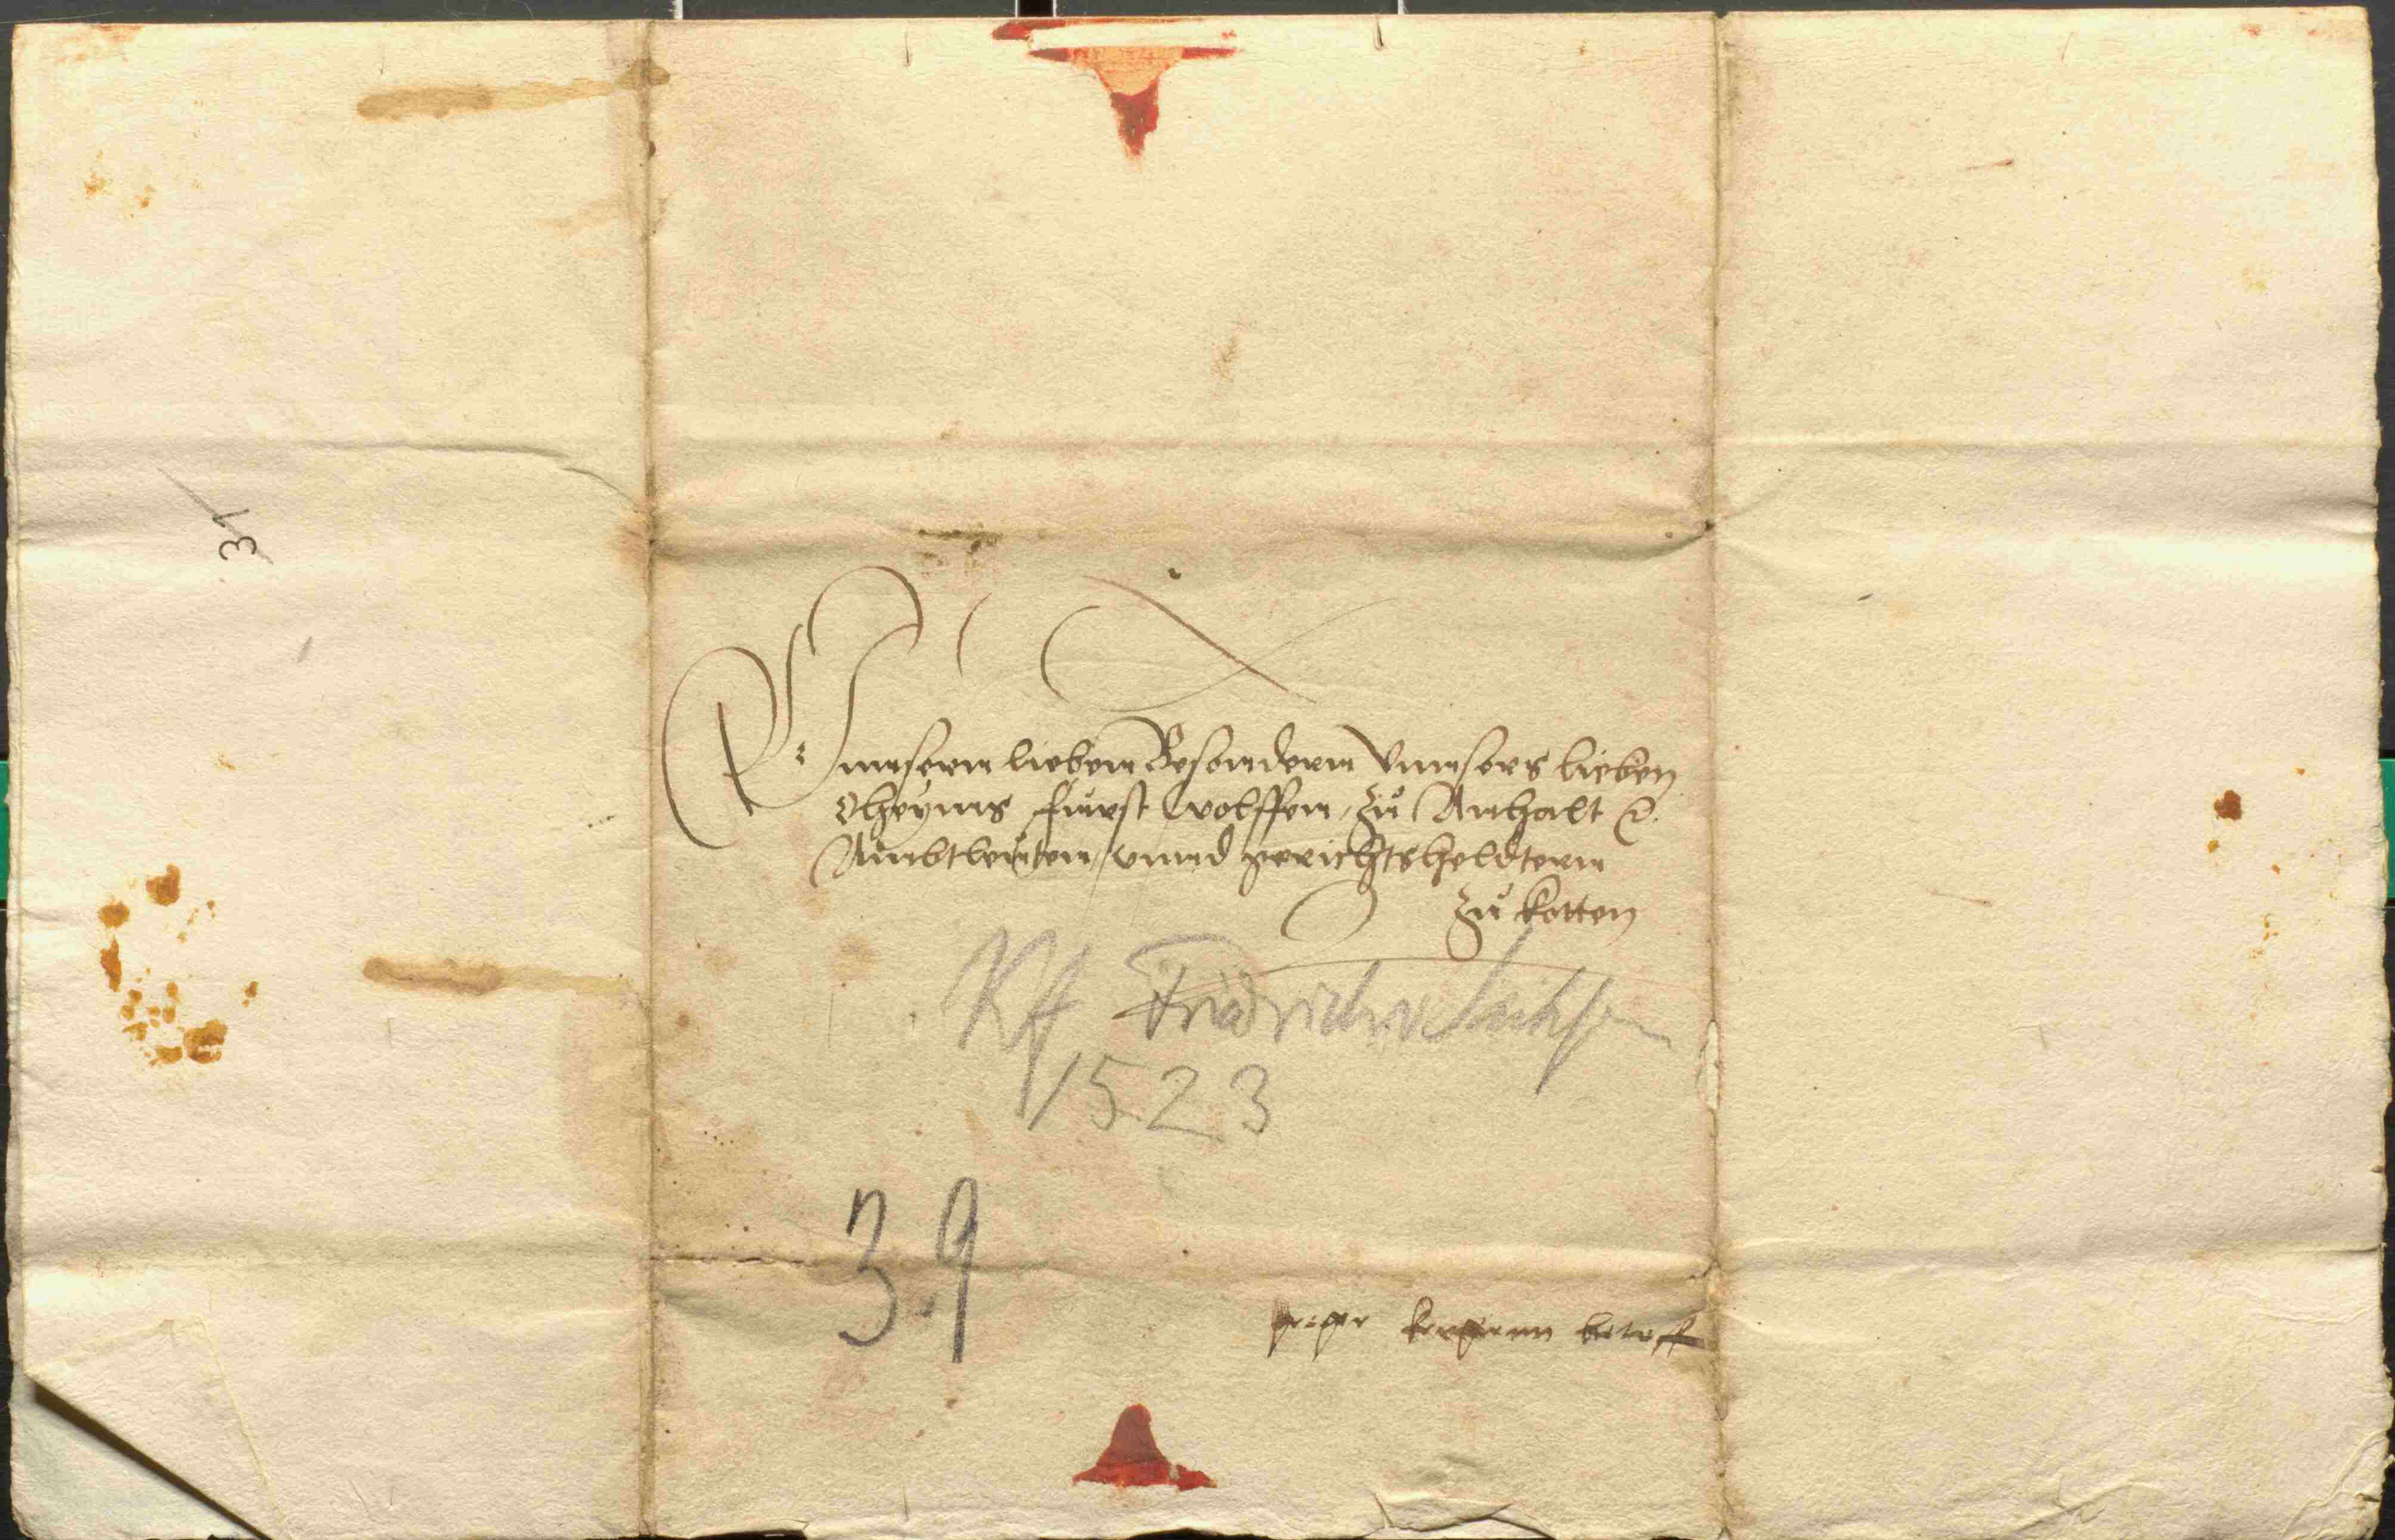 31
Vnnsern lieben Besondern Vnnsers lieben
Oheyms furst Wolffen, zu Anhalt ꝛc.
Ambtleuten, vnnd gerichtsheldtern
zu kotten
Kf Friedrich v Sachsen
1523
39
betreff